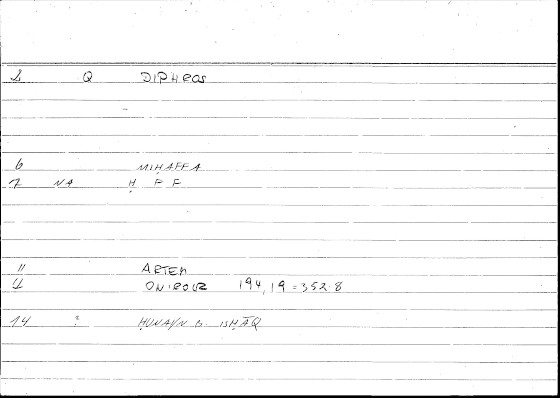 2 Q DIPHROS
6 MIḤAFFA
7 NA Ḥ F F
11 ARTEM
ONIROCR 194,19 = 352.8
14 : ḤUNAYN B. ISḤĀQ